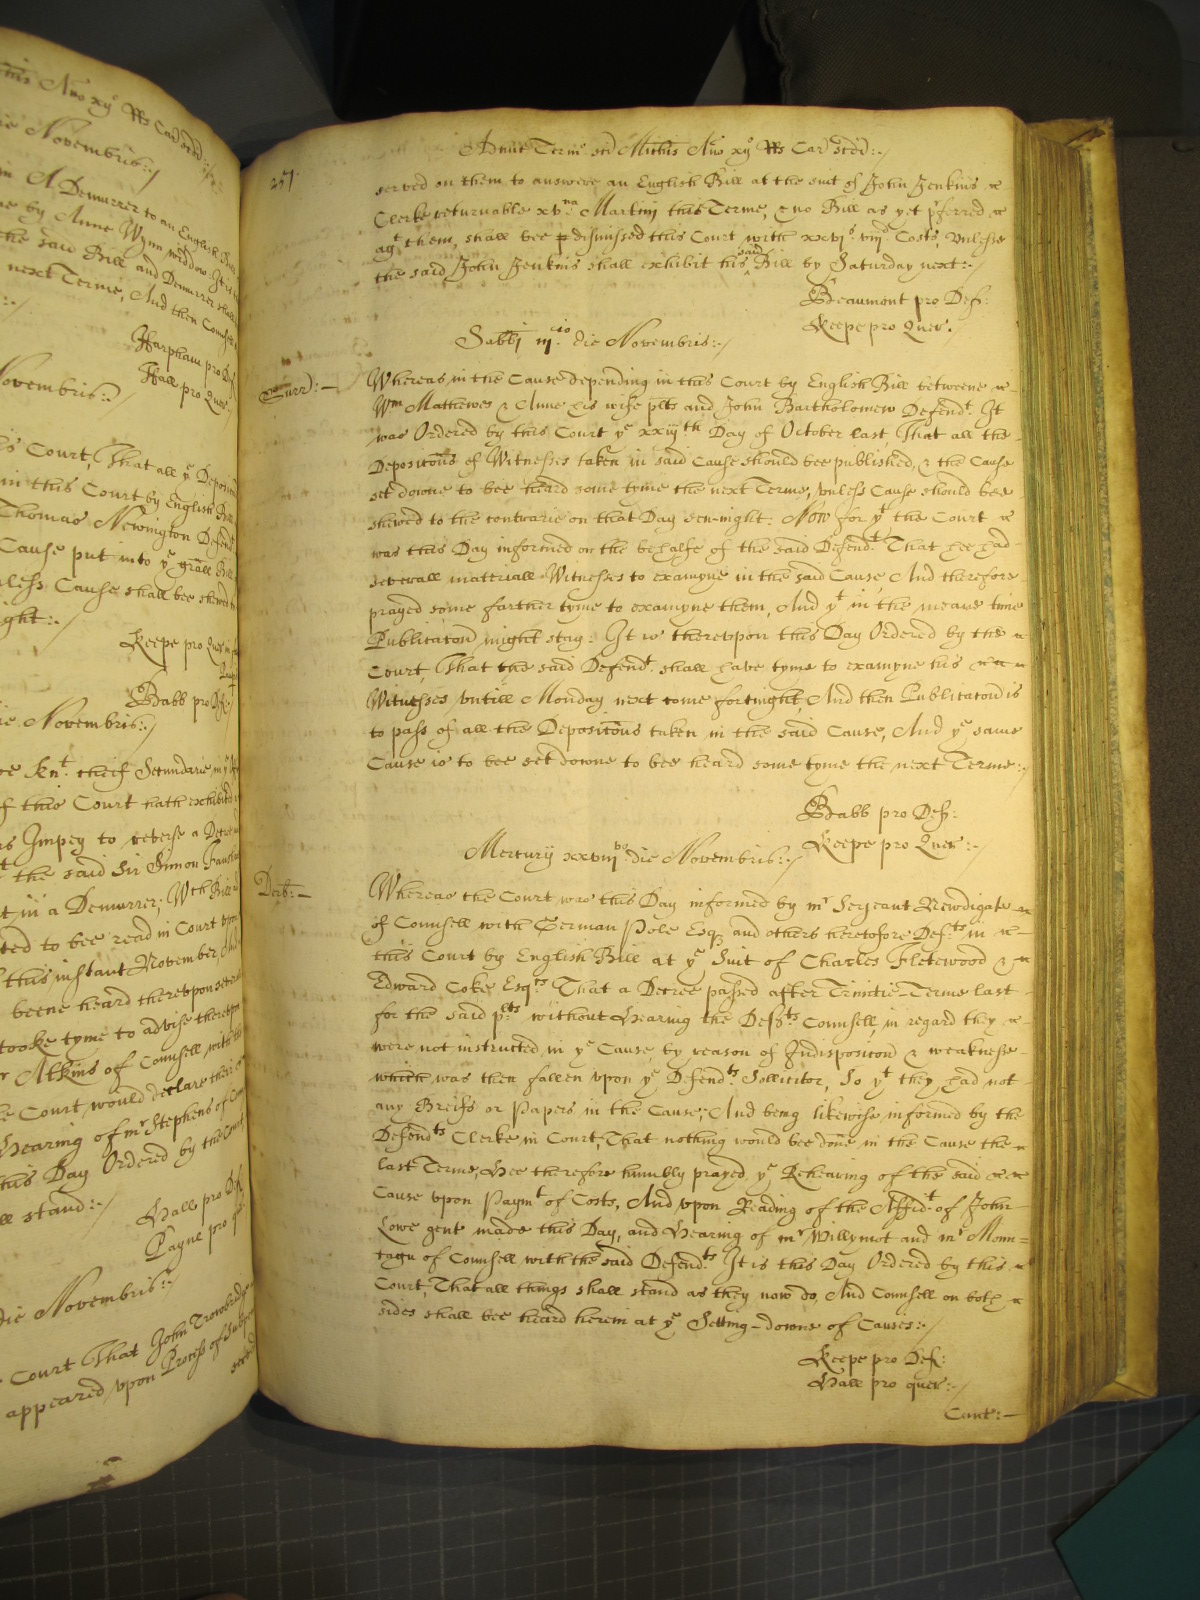 nis Ano xv Rs Car scdi:/
ie Novembris:/
A Demurrer to an English Bill
e by Anne Wynn widdow It is
the said Bill and Demurrer shall
next Terme, And then Counsell
:/
Harpham pro Def
Hall pro Quer
Novembris:/
s Court, That all ye Deposicons
in this Court by English Bill
Thomas Newington Defendt
Cause put into ye grall Bill
nless Cause shall bee shewed
ght:/
Keepe pro Quer
Babb pro Def:
ie Novembris:/
re Knt. cheif Secundarie in
f this Court hath exhibited
rs Impey to reverse a Decree
t the said Sir Simon Fanshaw
t in a Demurrer; Wch Bill
ted to bee read in Court
f this instant November,
beene heard therevpon
tooke tyme to advise therevpon
r Atkins of Counsell with
e Court would declare their
Hearing of mr Stephens of
this Day Ordered by the Court
ll stand:/
Hall pro Def
Payne pro
die Novembris:/
Court That John Trowbridge
appeared vpon Process of Subpena
served
257.
Adhuc Term' scd Michis Ano xv Rs Car scdi:/
served on them to answere an English Bill at the suit of John Jenkins
Clerke returnable xvna Martini this Terme, & no Bill as yet pferred
agt them, shall bee dismissed this Court with xxvis viijd Costs, Vnlesse
the said John Jenkins shall exhibit his said Bill by Saturday next:/
Beaumont pro Def:
Keepe pro Quer.
Sabbi iijcio die Novembris:/
Surr:
Whereas in the Cause depending in this Court by English Bill betweene
Wm Mathewes & Anne his wife plts and John Bartholomew Defendt. It
was Ordered by this Court ye xxiijth Day of October last, That all the
Depositons of Witnesses taken in said Cause should bee published, & the Cause
set downe to bee heard some tyme the next Terme, vnless Cause should bee
shewed to the contrarie on that Day sen-night. Now for yt the Court
was this Day informed on the behalfe of the said Defendt. That hee had
severall materiall Witnesses to examyne in the said Cause, And therefore
prayed some farther tyme to examyne them, And yt in the meane time
Publicaton might stay: It is therevpon this Day Ordered by the
Court, That the said Defendt. shall have tyme to examyne his
Witnesses vntill Monday next come fortnight, And then Publicaton is
to pass of all the Depositons taken in the said Cause, And ye same
Cause is to bee set downe to bee heard some tyme the next Terme:/
Babb pro Def:
Keepe pro Quer:/
Mercurij xxviijvo die Novembris:/
Derb:
Whereas the Court was this Day informed by mr Serjeant Newdigate
of Counsell with German Pole Esq and others heretofore Defts in
this Court by English Bill at ye Suit of Charles Fletewood &
Edward Coke Esqrs That a Decree passed after Trinitie-Terme last
for the said plts without Hearing the Defts Counsell, in regard they
were not instructed in ye Cause, by reason of Indispositon & weaknesse
which was then fallen vpon ye Defendts Sollicitor, So yt they had not
any Breifs or Papers in the Cause; And being likewise informed by the
Defendts Clerke in Court, That nothing would bee done in the Cause the
last Terme, Hee therefore humbly prayed ye Rehearing of the said
Cause vpon Paymt of Costs, And vpon Reading of the Affidt of John
Lowe gent made this Day, and Hearing of mr Willymot and mr Moun=
tagu of Counsell with the said Defendts It is this Day Ordered by this
Court, That all things shall stand as they now do, And Counsell on both
sides shall bee heard herein at ye Setting-downe of Causes:/
Keepe pro Def:
Hall pro quer:/
Cant: